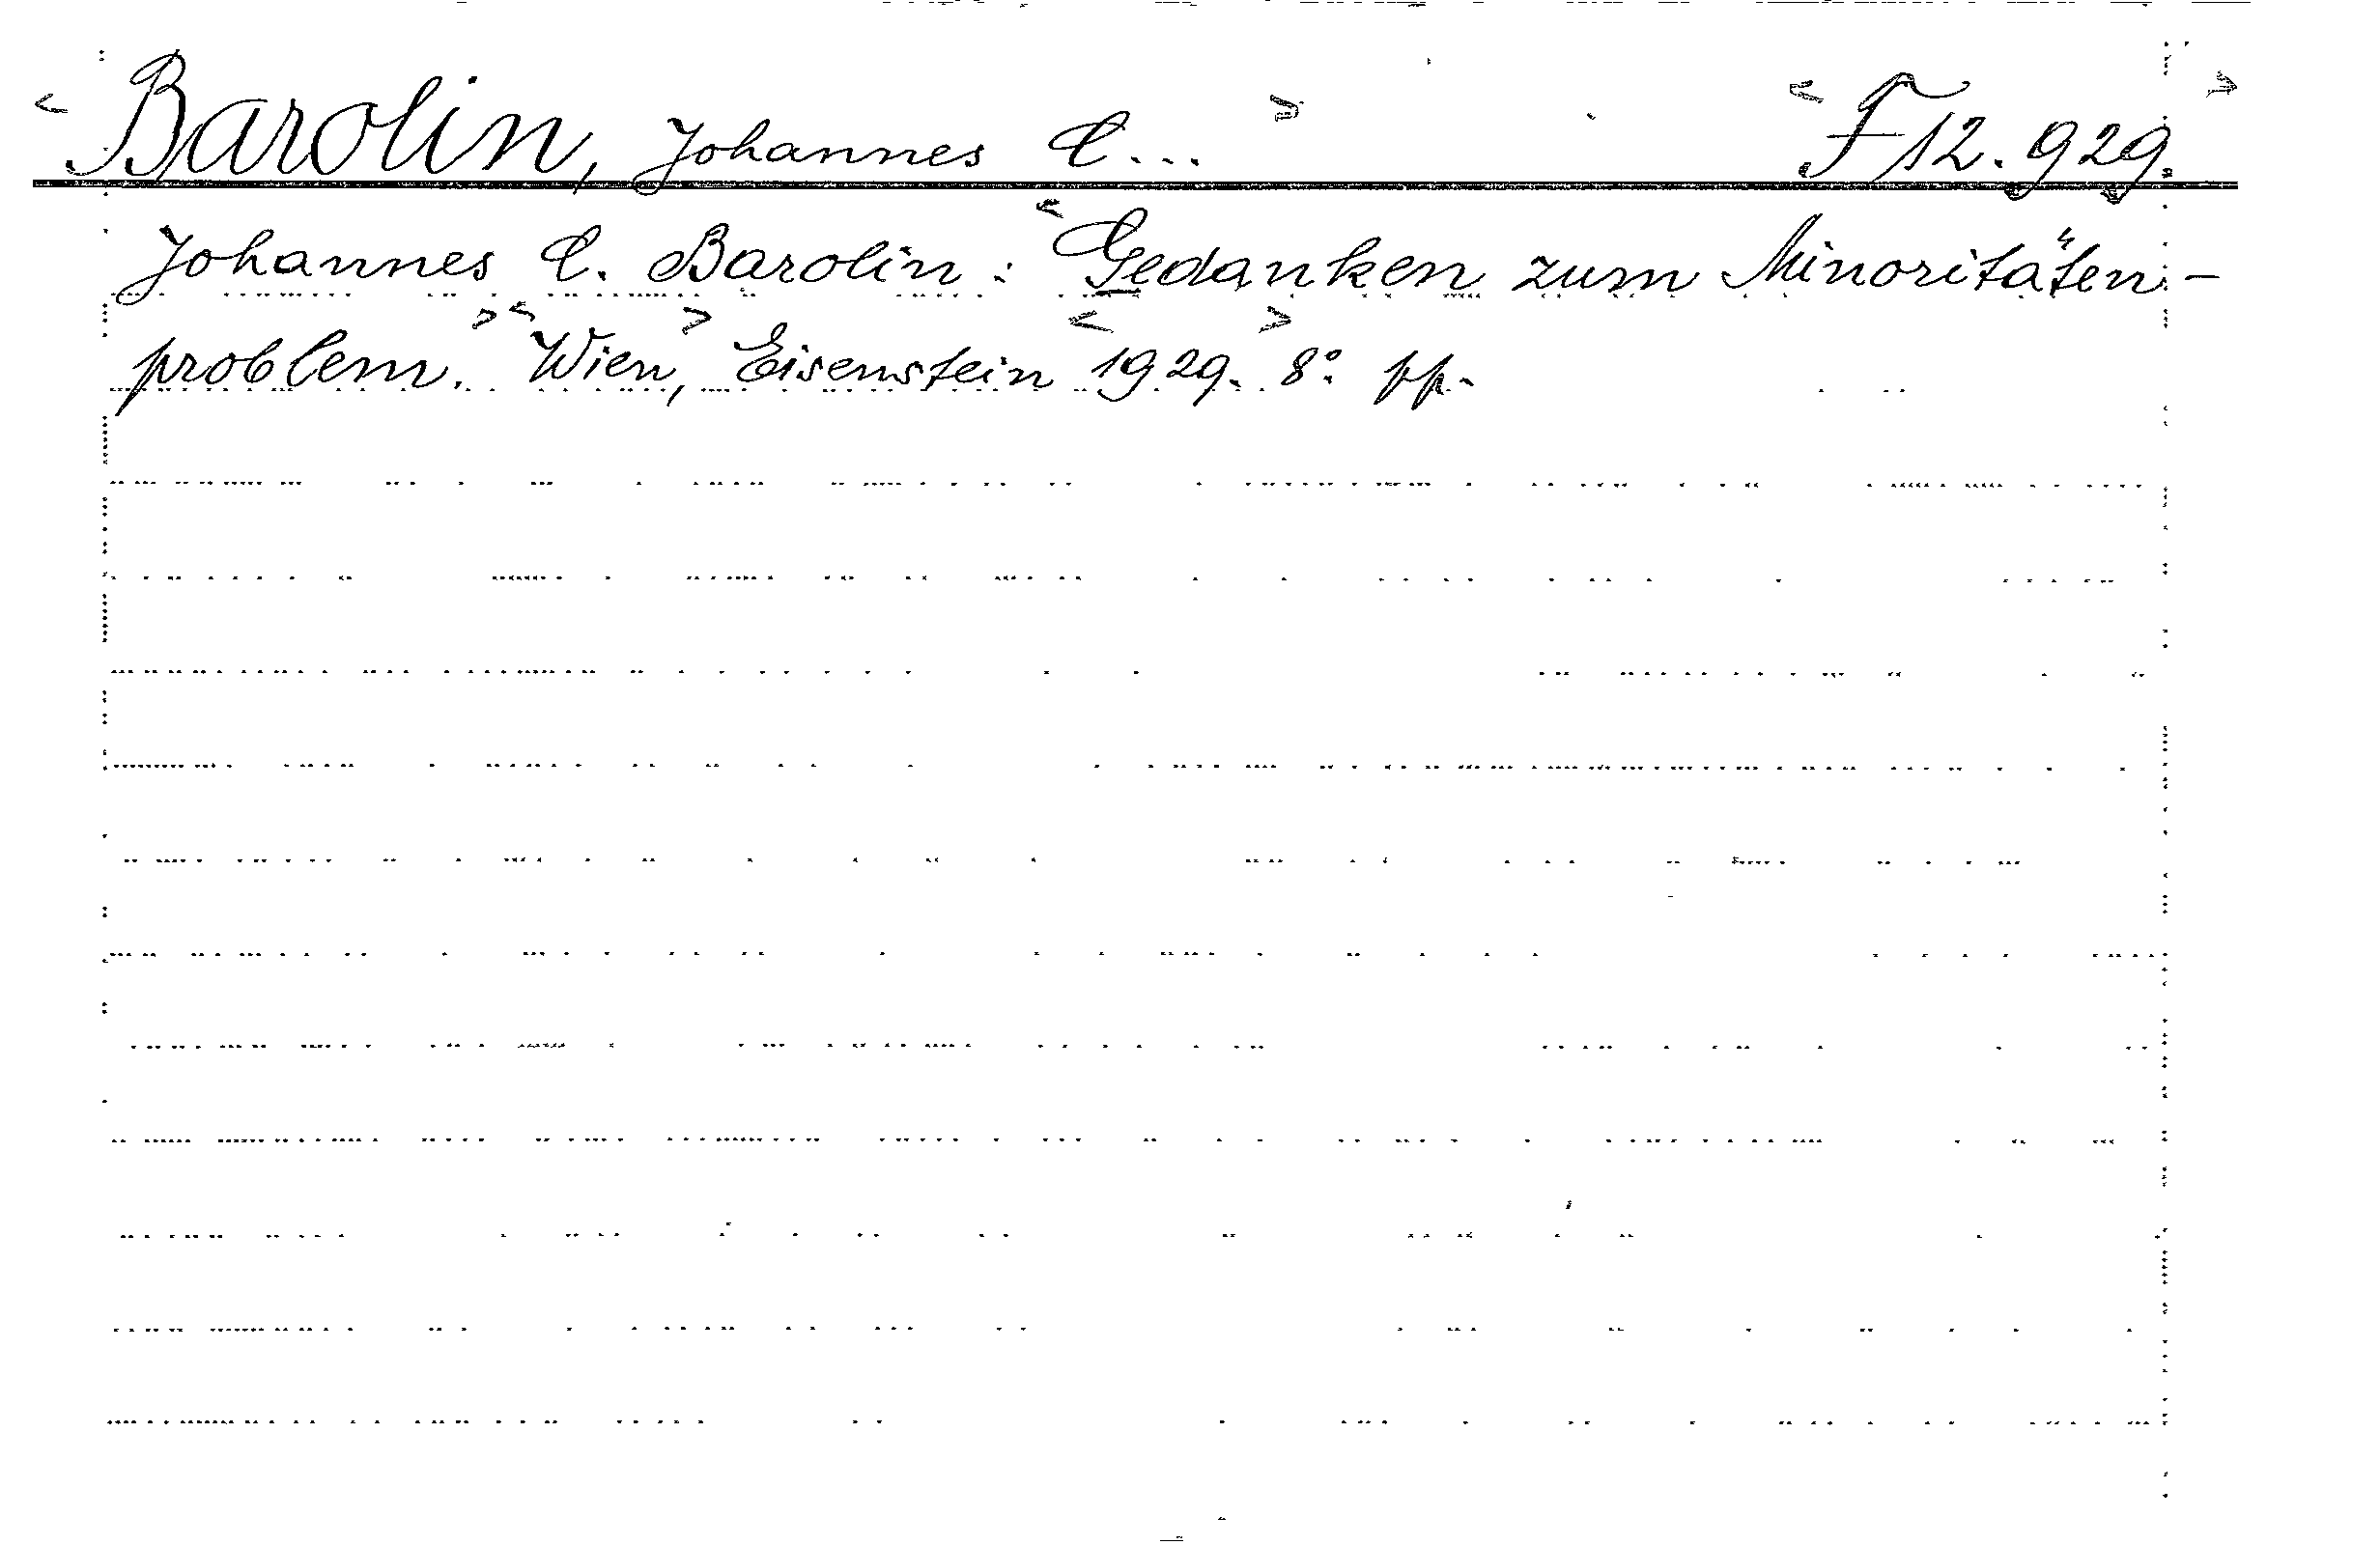 < Barolin, Johannes C... > < F 12.929. >
Johannes C. Barolin: < Gedanken zum Minoritäten-
problem. > < Wien, > Eisenstein < 1929. > 8° pp.